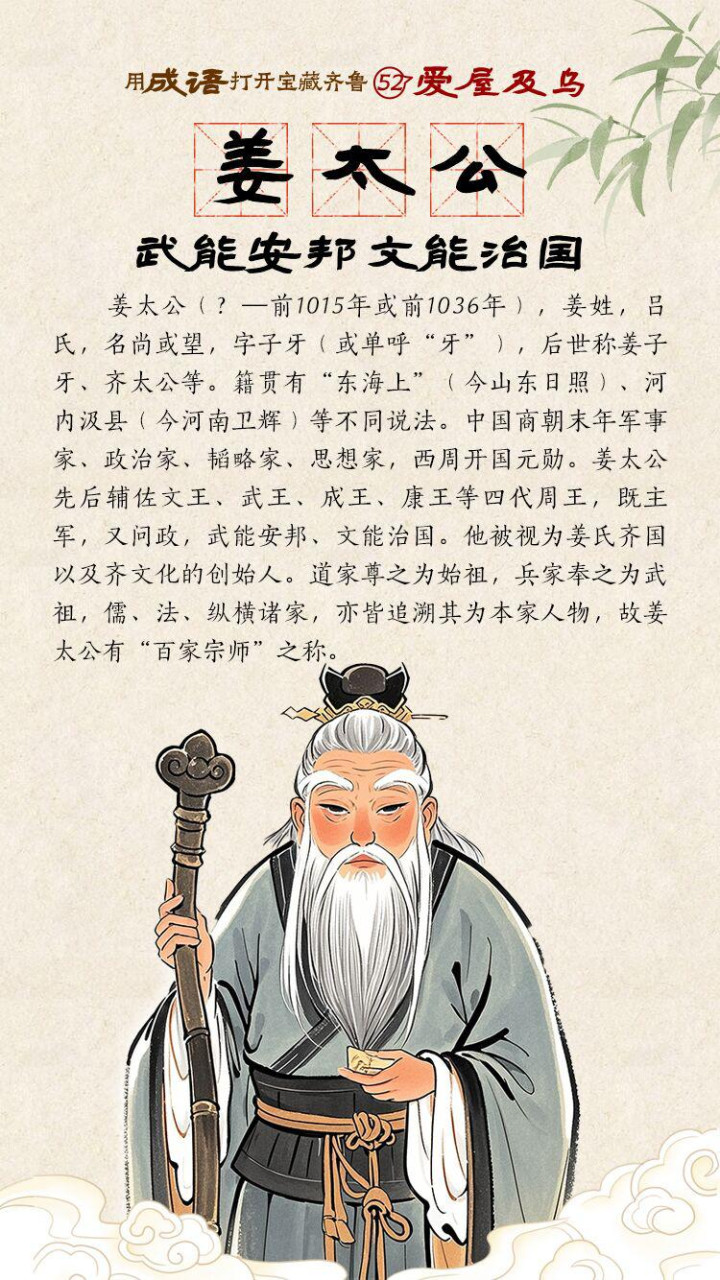 用成语打开宝藏齐鲁 52 爱屋及乌
姜太公
武能安邦 文能治国
姜太公（？—前1015年或前1036年），姜姓，吕
氏，名尚或望，字子牙（或单呼“牙”），后世称姜子
牙、齐太公等。籍贯有“东海上”（今山东日照）、河
内汲县（今河南卫辉）等不同说法。中国商朝末年军事
家、政治家、韬略家、思想家，西周开国元勋。姜太公
先后辅佐文王、武王、成王、康王等四代周王，既主
军，又问政，武能安邦、文能治国。他被视为姜氏齐国
以及齐文化的创始人。道家尊之为始祖，兵家奉之为武
祖，儒、法、纵横诸家，亦皆追溯其为本家人物，故姜
太公有“百家宗师”之称。